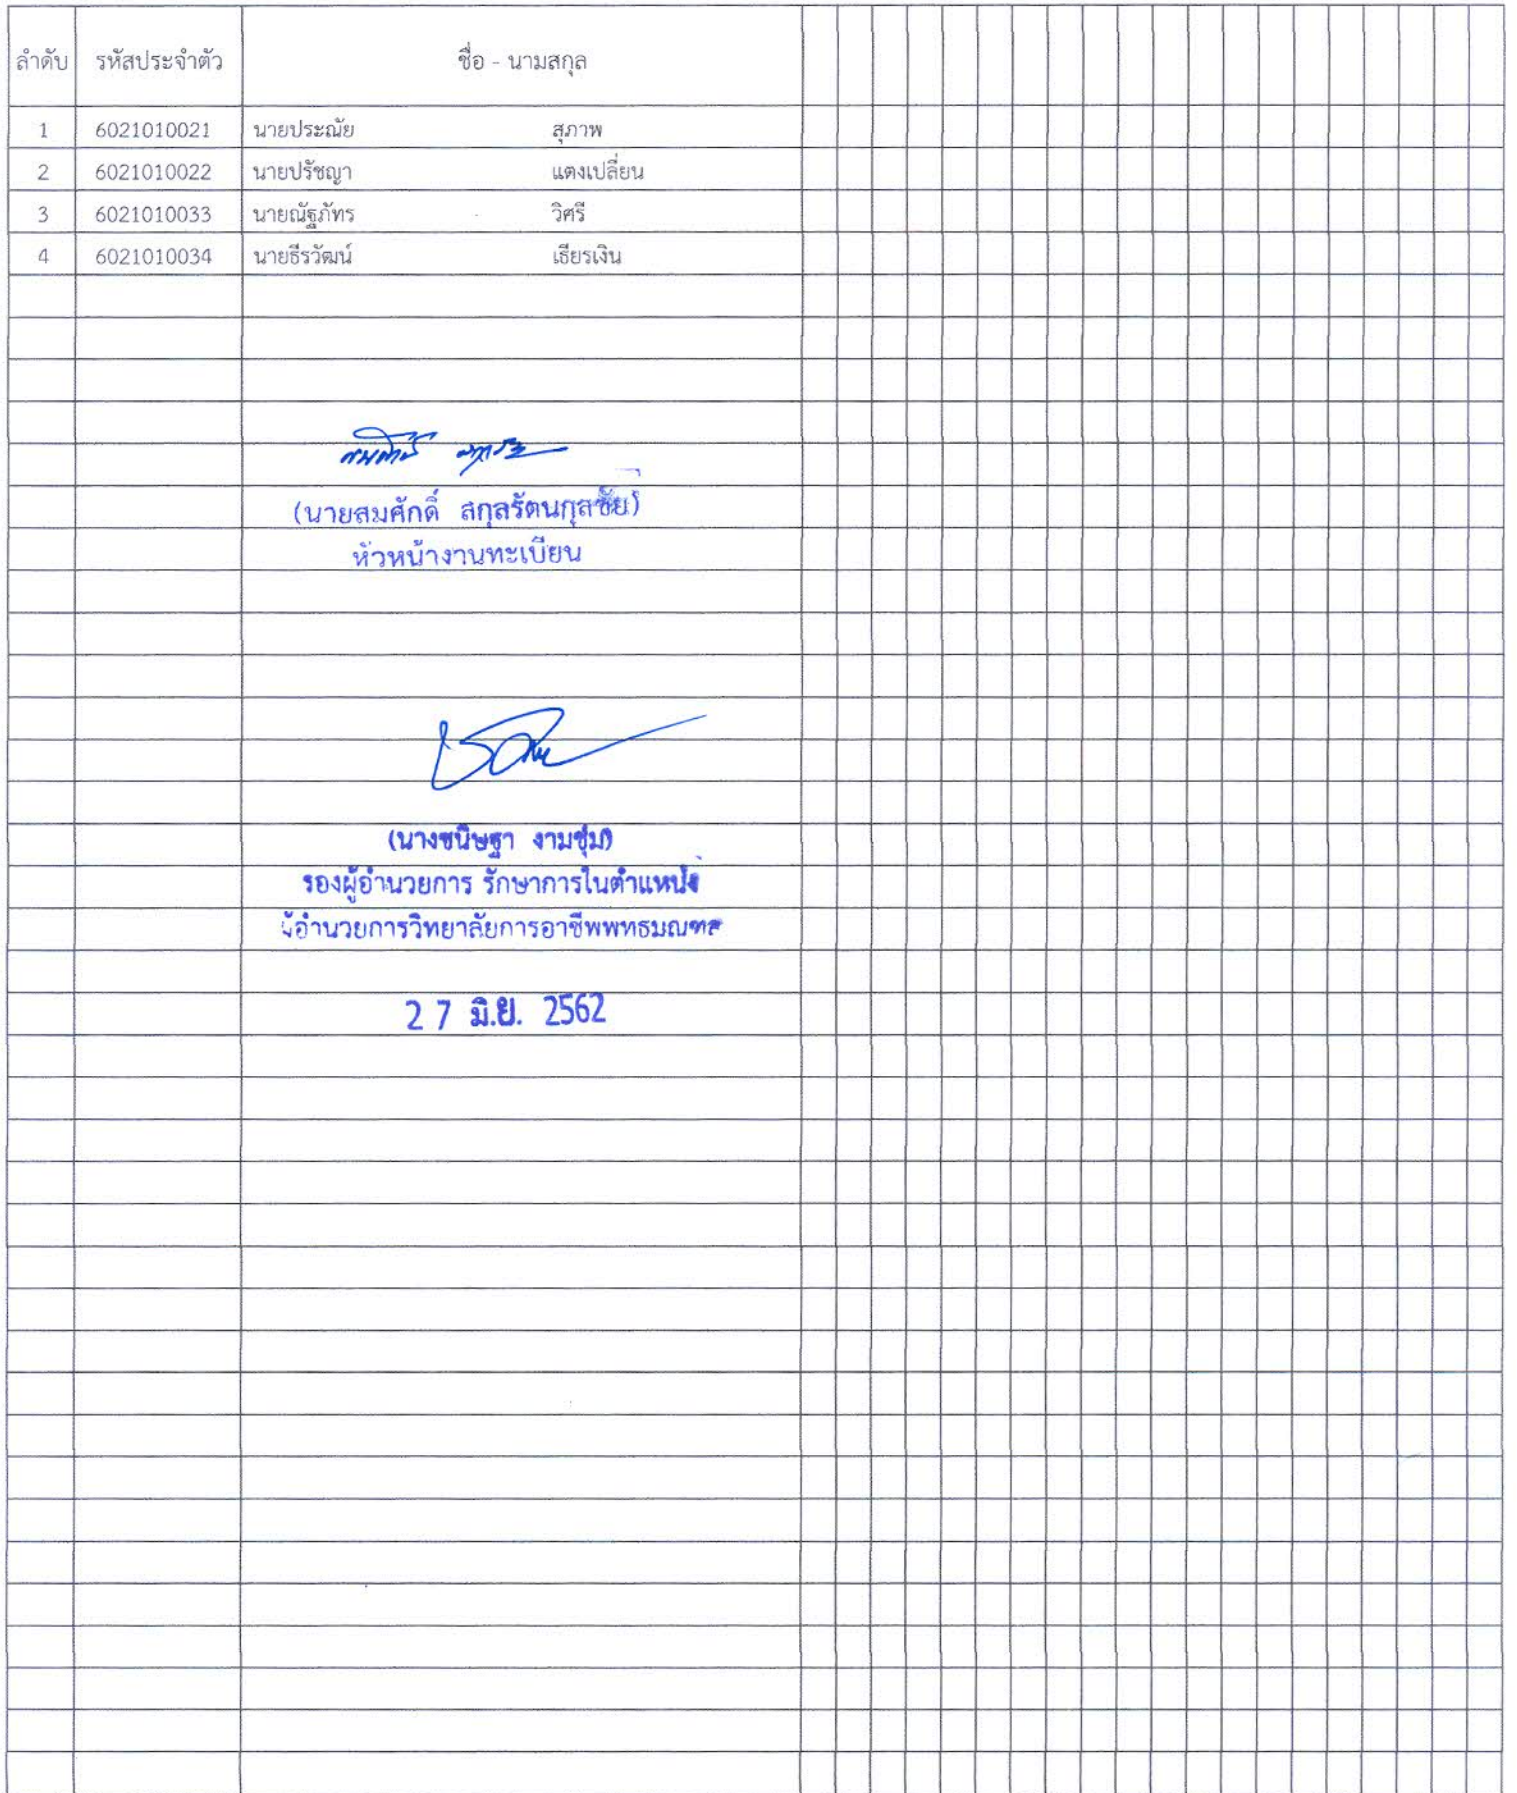 ลำดับ รหัสประจำตัว ชื่อ - นามสกุล
1 6021010021 นายประณัย สุภาพ
2 6021010022 นายปรัชญา แตงเปลี่ยน
3 6021010033 นายณัฐภัทร วิศรี
4 6021010034 นายธีรวัฒน์ เธียรเงิน
(นายสมศักดิ์ สกุลรัตนกุลชัย)
หัวหน้างานทะเบียน
(นางชนิษฐา งามชุ่ม)
รองผู้อำนวยการ รักษาการในตำแหน่ง
ผู้อำนวยการวิทยาลัยการอาชีพพุทธมณฑล
27 มิ.ย. 2562